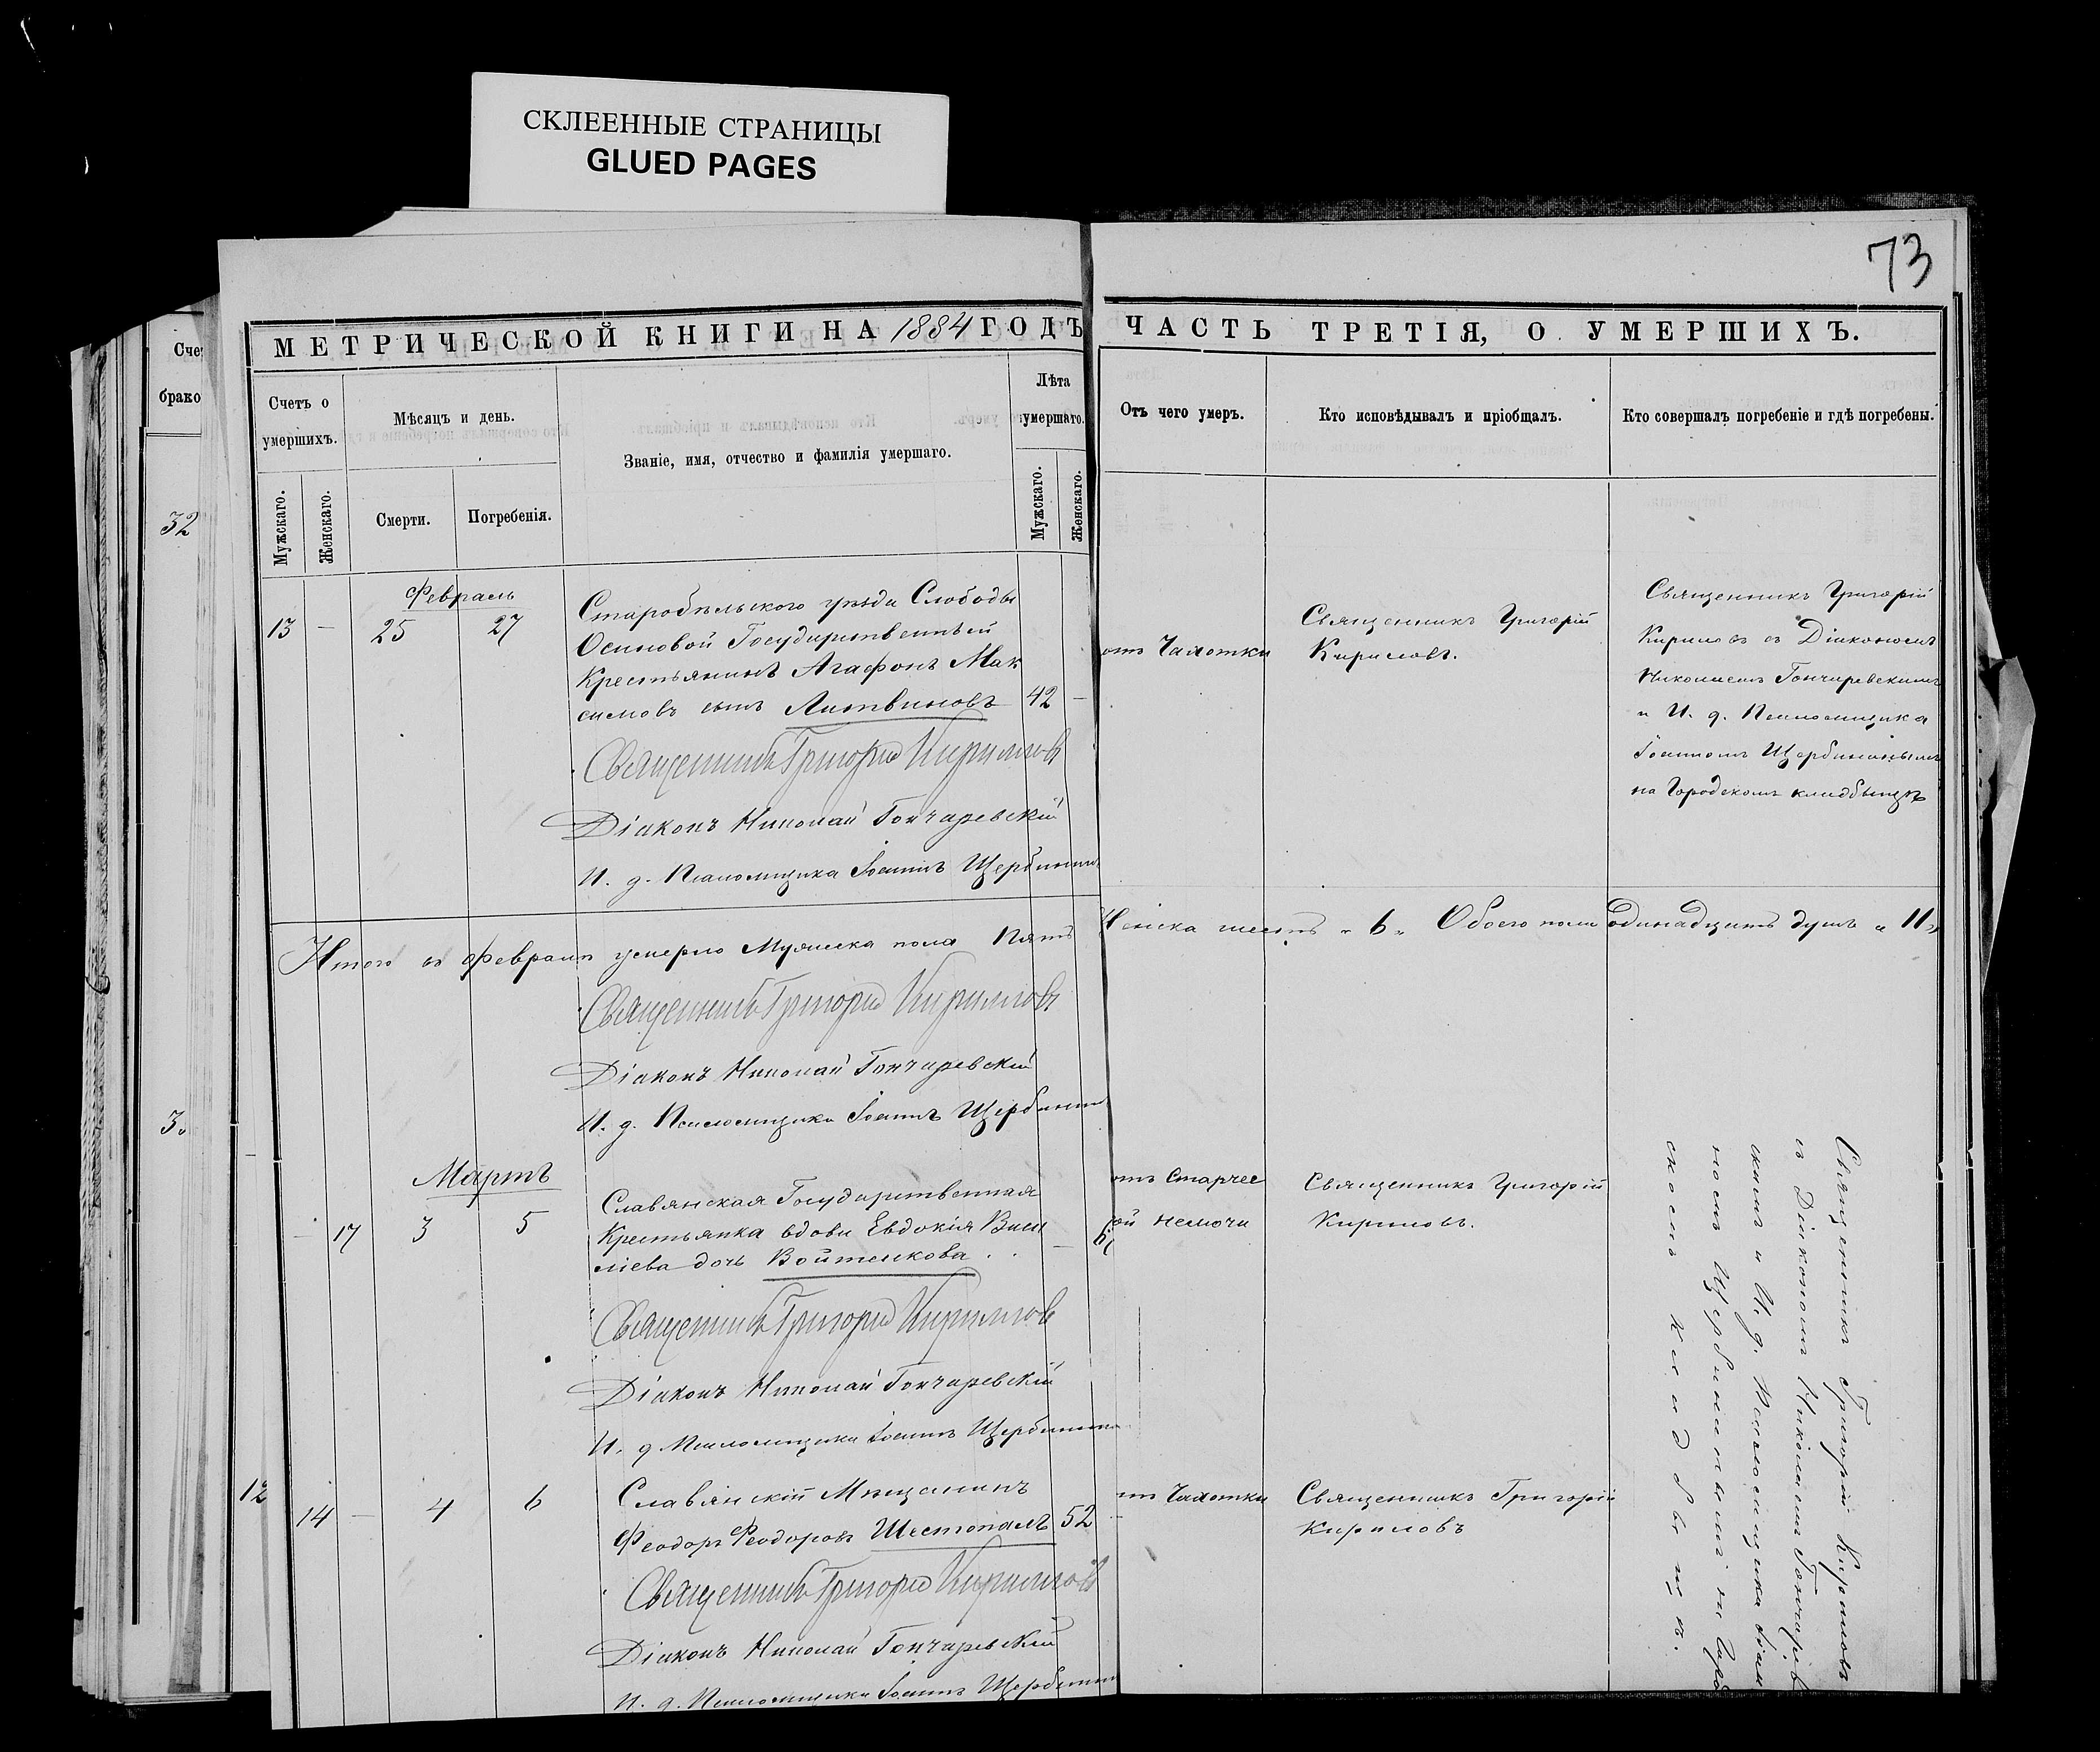 СКЛЕЕННЫЕ СТРАНИЦЫ
GLUED PAGES
73
МЕТРИЧЕСКОЙ КНИГИ НА 1884 ГОДЪ
ЧАСТЬ ТРЕТІЯ, О УМЕРШИХЪ.
Счетъ о умершихъ.
Мужскаго.
Женскаго.
Мѣсяцъ и день.
Смерти.
Погребенія.
Званіе, имя, отчество и фамилія умершаго.
Лѣта умершаго.
Мужскаго.
Женскаго.
Отъ чего умеръ.
Кто исповѣдывалъ и пріобщалъ.
Кто совершалъ погребеніе и гдѣ погребены.
брако
32
Февраль
13 — 25 27
Старобѣльскаго уѣзда Слободы
Осиновой Государственный
Крестьянинъ Агафонъ Мак
симовъ сынъ Литвиновъ 42 —
отъ Чахотки
Священникъ Григорій
Кириловъ.
Священникъ Григорій
Кириловъ съ Діакономъ
Николаемъ Гончаревскимъ
и И. д. Псаломщика
Іоанномъ Щербининымъ
на Городскомъ кладбищѣ
Священникъ Григорій Кириловъ
Діаконъ Николай Гончаревскій
И. д. Псаломщика Іоаннъ Щербининъ
Итого въ Февралѣ умерло Мужеска пола Пять
Женска шесть „ 6 „ Обоего пола одинадцать душъ „ 11 „
Священникъ Григорій Кириловъ
Діаконъ Николай Гончаревскій
И. д. Псаломщика Іоаннъ Щербининъ
Мартъ
— 17 3 5
Славянская Государственная
Крестьянка вдова Евдокія Васи
ліева дочь Войтенкова. —
отъ Старчес
кой немочи
Священникъ Григорій
Кириловъ.
Священникъ Григорій Кириловъ
Діаконъ Николай Гончаревскій
И. д. Псаломщика Іоаннъ Щербининъ
12
14 — 4 6
Славянскій Мѣщанинъ
Феодоръ Феодоровъ Шестопалъ 52 —
отъ Чахотки
Священникъ Григорій
Кириловъ
Священникъ Григорій Кириловъ
Діаконъ Николай Гончаревскій
И. д. Псаломщика Іоаннъ Щербининъ
Священникъ Григорій Кириловъ
съ Діакономъ Николаемъ Гончарев
скимъ и И. д. Псаломщика Іоан
номъ Щербининымъ на Город
скомъ кладбищѣ.